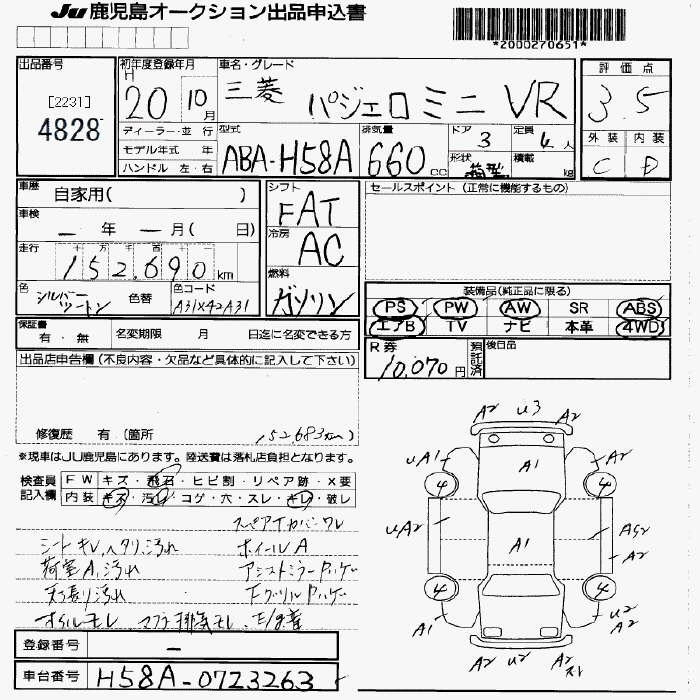 JU 鹿児島オークション出品申込書
*2000270651*
出品番号
[2231]
4828
初年度登録年月
H
20 10月
車名・グレード
三菱 パジェロミニ VR
評価点
3.5
外装 内装
C D
ディーラー・並行
モデル年式 年
ハンドル 左・右
型式
ABA-H58A
排気量
660cc
ドア
3
定員
4人
形状
積載
kg
車歴
自家用( )
車検
— 年 — 月( 日)
走行
十 万 千 百 十 一
152,690km
色
シルバーツートン
色替
色コード
A31X42A31
シフト
FAT
冷房
AC
燃料
ガソリン
セールスポイント(正常に機能するもの)
装備品(純正品に限る)
PS PW AW SR ABS
エアB TV ナビ 本革 4WD
保証書
有・無
名変期限 月 日迄に名変できる方
R券
10,070円
預託済
後日品
出品店申告欄(不良内容・欠品など具体的に記入して下さい)
修復歴 有(箇所 152,683km)
※現車はJU鹿児島にあります。陸送費は落札店負担となります。
検査員記入欄
FW キズ・飛石・ヒビ割・リペア跡・X要
内装 キズ・汚れ・コゲ・穴・スレ・キレ・破レ
スペアタイヤカバーワレ
シートキレ,ヘタリ,汚れ ホイールA
荷室A,汚れ アシストミラー
天張り汚れ Fグリル
オイルモレ マフラ排気モレ
登録番号
—
車台番号
H58A-0723263
A2 U3 A2
UA1 A1 A2
4 4
UA2 A1
A2
4 4
A1 U2
A2
A2 U2 A2